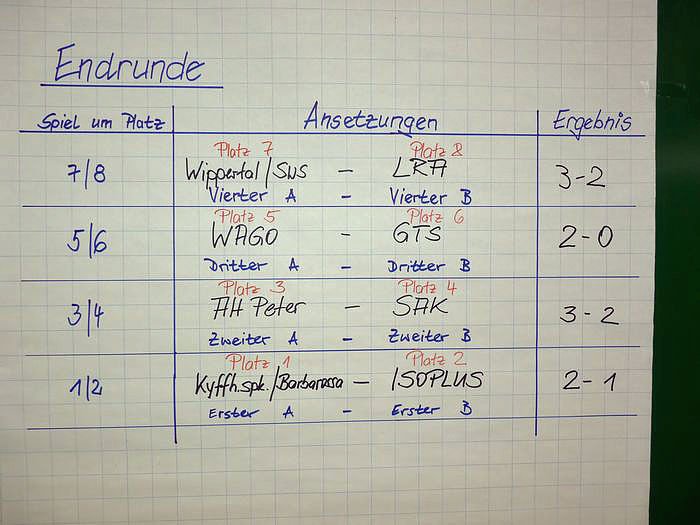 Endrunde
Spiel um Platz Ansetzungen Ergebnis
Platz 7 Platz 8
7/8 Wippertal/SWS - LRA 3-2
Vierter A - Vierter B
Platz 5 Platz 6
5/6 WAGO - GTS 2-0
Dritter A - Dritter B
Platz 3 Platz 4
3/4 AH Peter - SAK 3-2
Zweiter A - Zweiter B
Platz 1 Platz 2
1/2 Kyffh.spk./Barbarossa - ISOPLUS 2-1
Erster A - Erster B